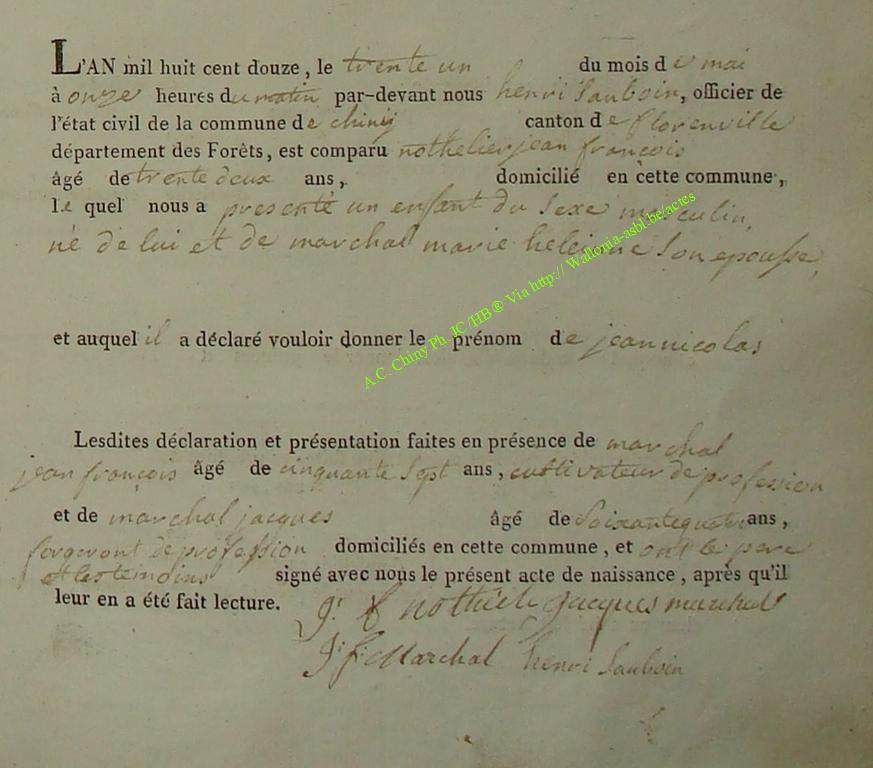 L'AN mil huit cent douze, le trente un du mois de mai
à onze heures du matin par-devant nous henri Sauboin, officier de
l'état civil de la commune de chiny canton de florenville
département des Forêts, est comparu nothelier jean françois
âgé de trente deux ans, domicilié en cette commune,
le quel nous a presenté un enfant du sexe masculin,
né de lui et de marchal marie heleinne son epousse,
et auquel il a déclaré vouloir donner le prénom de jean nicolas
Lesdites déclaration et présentation faites en présence de marchal
jean françois âgé de cinquante sept ans, cultivateur de profession
et de marchal jacques âgé de soixante quatre ans,
forgeront de profession domiciliés en cette commune, et ont le pere
et les temoins signé avec nous le présent acte de naissance, après qu'il
leur en a été fait lecture. jacques marchal
J: f: Marchal henri Sauboin
A.C. Chiny Ph. JC/HB® Via http:// Wallonia-asbl.be/actes